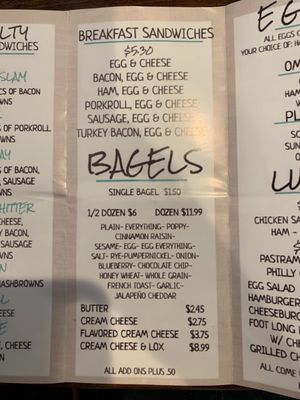 LTY
DWICHES
SLAM
CS OF BACON
WNS
S OF PORKROLL
WNS
AY
OF BACON,
SAUSAGE
WNS
HITTER
CHEESE,
BACON,
SAUSAGE
WNS
N
HASHBROWNS
L
CHEESE
E
, CHEESE
ON
BREAKFAST SANDWICHES
$5.30
EGG & CHEESE
BACON, EGG & CHEESE
HAM, EGG & CHEESE
PORKROLL, EGG & CHEESE
SAUSAGE, EGG & CHEESE
TURKEY BACON, EGG & CHEESE
BAGELS
SINGLE BAGEL $1.50
1/2 DOZEN $6 DOZEN $11.99
PLAIN- EVERYTHING- POPPY-
CINNAMON RAISIN-
SESAME- EGG- EGG EVERYTHING-
SALT- RYE-PUMPERNICKEL- ONION-
BLUEBERRY- CHOCOLATE CHIP-
HONEY WHEAT- WHOLE GRAIN-
FRENCH TOAST- GARLIC-
JALAPEÑO CHEDDAR
BUTTER $2.45
CREAM CHEESE $2.75
FLAVORED CREAM CHEESE $3.75
CREAM CHEESE & LOX $8.99
ALL ADD ONS PLUS .50
EG
ALL EGGS
YOUR CHOICE OF: H
OM
HAM
PL
SUN
LU
CHICKEN SA
HAM -
PASTRAM
PHILLY
EGG SALAD
HAMBURGER
CHEESEBURG
FOOT LONG
W/ CH
GRILLED CH
ALL COME